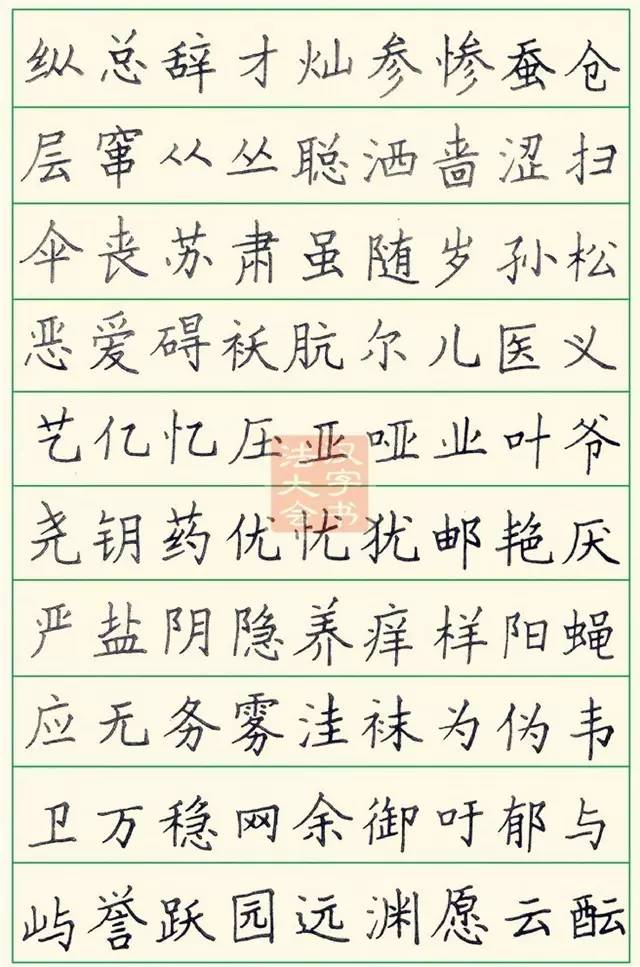 纵总辞才灿参惨蚕仓
层窜从丛聪洒啬涩扫
伞丧苏肃虽随岁孙松
恶爱碍袄肮尔儿医义
艺亿忆压亚哑业叶爷
尧钥药优忧犹邮艳厌
严盐阴隐养痒样阳蝇
应无务雾洼袜为伪韦
卫万稳网余御吁郁与
屿誉跃园远渊愿云酝
汉字书法大会